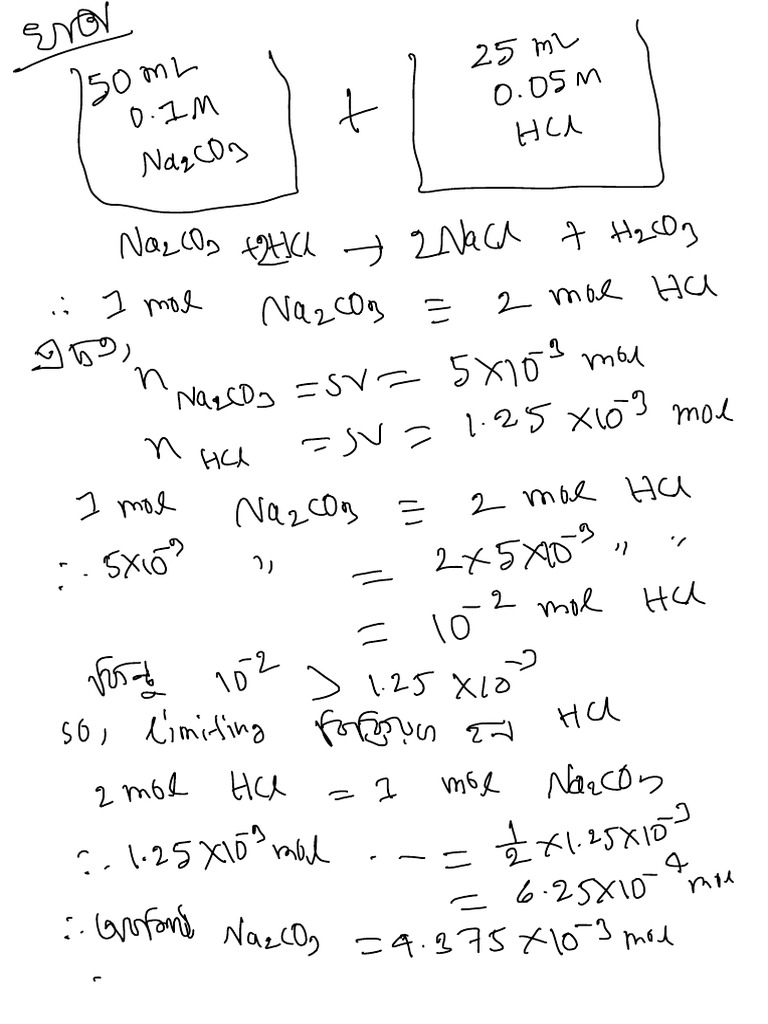 50 mL
0.1M
Na₂CO₃
+
25 mL
0.05M
HCl
Na₂CO₃ + 2HCl → 2NaCl + H₂CO₃
∴ 1 mol Na₂CO₃ ≡ 2 mol HCl
এখন,
n Na₂CO₃ = SV = 5×10⁻³ mol
n HCl = SV = 1.25 ×10⁻³ mol
1 mol Na₂CO₃ ≡ 2 mol HCl
∴ 5×10⁻³ " = 2×5×10⁻³ " "
= 10⁻² mol HCl
কিন্তু 10⁻² > 1.25 ×10⁻³
so, limiting বিক্রিয়ক হল HCl
2 mol HCl = 1 mol Na₂CO₃
∴ 1.25×10⁻³ mol . — = ½ ×1.25×10⁻³
= 6.25×10⁻⁴ mol
∴ Na₂CO₃ = 4.375 ×10⁻³ mol